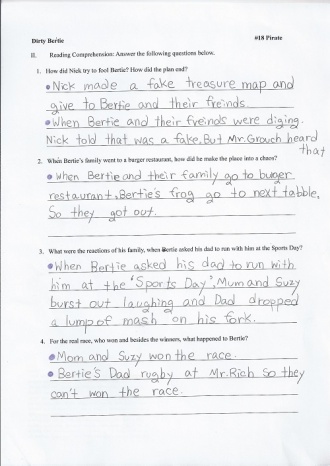 Dirty Bertie #18 Pirate
II. Reading Comprehension: Answer the following questions below.
1. How did Nick try to fool Bertie? How did the plan end?
Nick made a fake treasure map and
give to Bertie and their freinds
When Bertie and their freinds were diging.
Nick told that was a fake. But Mr. Grouch heard
that
2. When Bertie's family went to a burger restaurant, how did he make the place into a chaos?
When Bertie and their family go to burger
restaurant, Bertie's frog go to next tabble,
So they got out.
3. What were the reactions of his family, when Bertie asked his dad to run with him at the Sports Day?
When Bertie asked his dad to run with
him at the 'Sports Day', Mum and Suzy
burst out laughing and Dad dropped
a lump of mash on his fork.
4. For the real race, who won and besides the winners, what happened to Bertie?
Mom and Suzy won the race.
Bertie's Dad rugby at Mr. Rich So they
can't won the race.